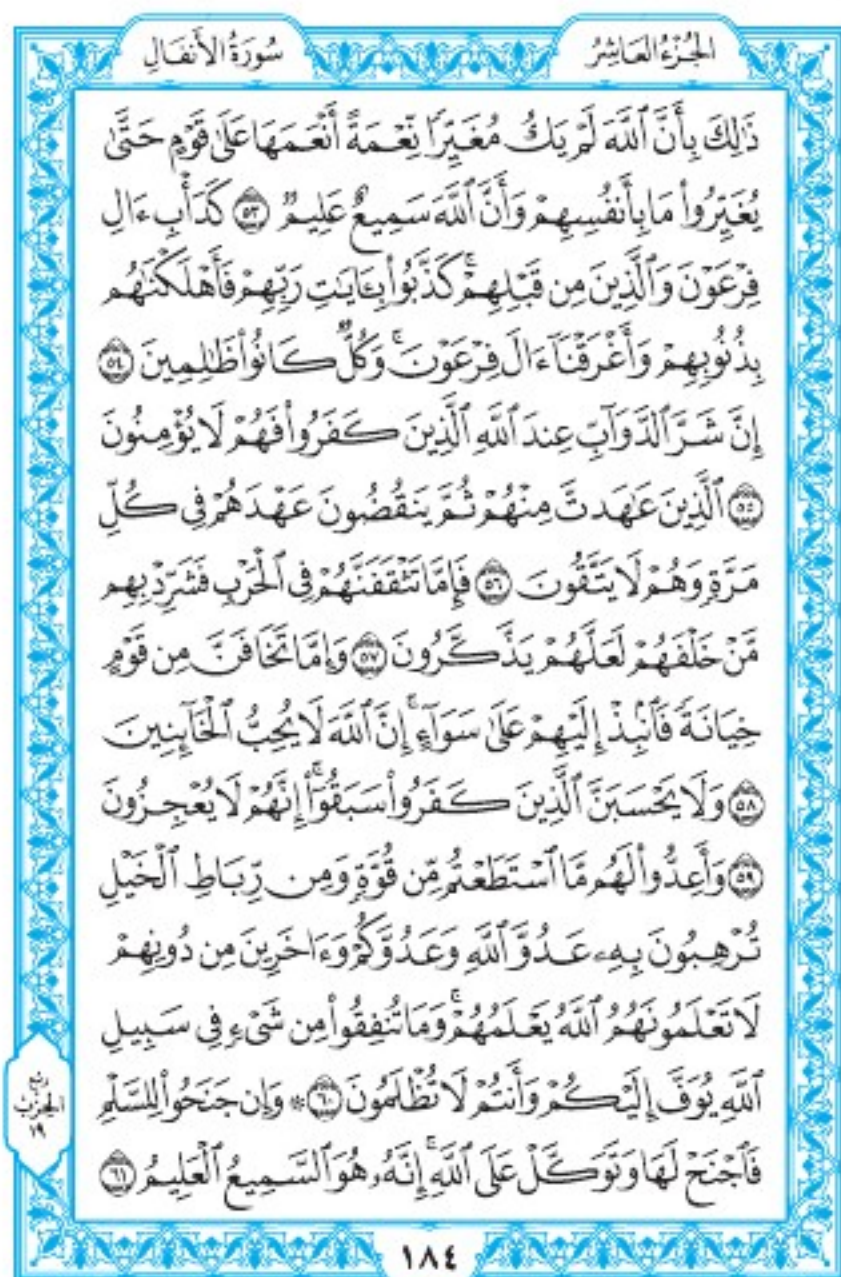 سُورَةُ الأَنفَالِ
الجُزْءُ العَاشِرُ
ذَٰلِكَ بِأَنَّ ٱللَّهَ لَمْ يَكُ مُغَيِّرًا نِّعْمَةً أَنْعَمَهَا عَلَىٰ قَوْمٍ حَتَّىٰ
يُغَيِّرُوا۟ مَا بِأَنفُسِهِمْ وَأَنَّ ٱللَّهَ سَمِيعٌ عَلِيمٌ ٥٣ كَدَأْبِ ءَالِ
فِرْعَوْنَ وَٱلَّذِينَ مِن قَبْلِهِمْ ۚ كَذَّبُوا۟ بِـَٔايَـٰتِ رَبِّهِمْ فَأَهْلَكْنَـٰهُم
بِذُنُوبِهِمْ وَأَغْرَقْنَآ ءَالَ فِرْعَوْنَ ۚ وَكُلٌّ كَانُوا۟ ظَـٰلِمِينَ ٥٤
إِنَّ شَرَّ ٱلدَّوَآبِّ عِندَ ٱللَّهِ ٱلَّذِينَ كَفَرُوا۟ فَهُمْ لَا يُؤْمِنُونَ
٥٥ ٱلَّذِينَ عَـٰهَدتَّ مِنْهُمْ ثُمَّ يَنقُضُونَ عَهْدَهُمْ فِى كُلِّ
مَرَّةٍ وَهُمْ لَا يَتَّقُونَ ٥٦ فَإِمَّا تَثْقَفَنَّهُمْ فِى ٱلْحَرْبِ فَشَرِّدْ بِهِم
مَّنْ خَلْفَهُمْ لَعَلَّهُمْ يَذَّكَّرُونَ ٥٧ وَإِمَّا تَخَافَنَّ مِن قَوْمٍ
خِيَانَةً فَٱنۢبِذْ إِلَيْهِمْ عَلَىٰ سَوَآءٍ ۚ إِنَّ ٱللَّهَ لَا يُحِبُّ ٱلْخَآئِنِينَ
٥٨ وَلَا يَحْسَبَنَّ ٱلَّذِينَ كَفَرُوا۟ سَبَقُوٓا۟ ۚ إِنَّهُمْ لَا يُعْجِزُونَ
٥٩ وَأَعِدُّوا۟ لَهُم مَّا ٱسْتَطَعْتُم مِّن قُوَّةٍ وَمِن رِّبَاطِ ٱلْخَيْلِ
تُرْهِبُونَ بِهِۦ عَدُوَّ ٱللَّهِ وَعَدُوَّكُمْ وَءَاخَرِينَ مِن دُونِهِمْ
لَا تَعْلَمُونَهُمُ ٱللَّهُ يَعْلَمُهُمْ ۚ وَمَا تُنفِقُوا۟ مِن شَىْءٍ فِى سَبِيلِ
ٱللَّهِ يُوَفَّ إِلَيْكُمْ وَأَنتُمْ لَا تُظْلَمُونَ ٦٠ ۞ وَإِن جَنَحُوا۟ لِلسَّلْمِ
فَٱجْنَحْ لَهَا وَتَوَكَّلْ عَلَى ٱللَّهِ ۚ إِنَّهُۥ هُوَ ٱلسَّمِيعُ ٱلْعَلِيمُ ٦١
ربع
الحزب
١٩
١٨٤